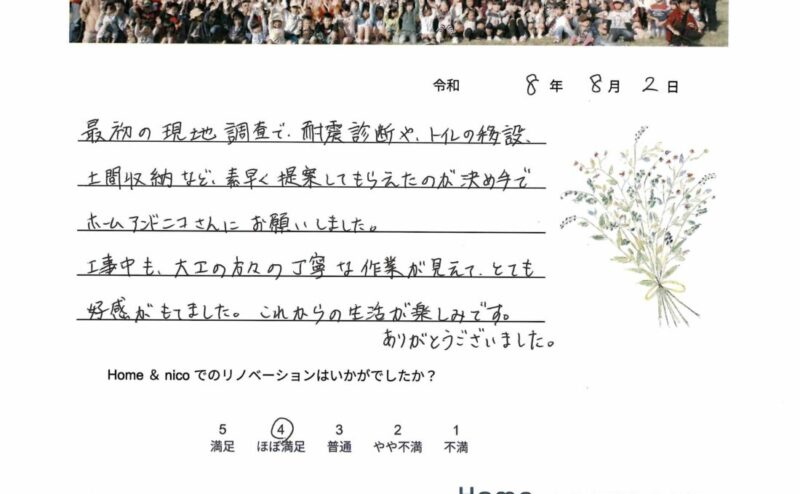 令和 8年 8月 2日
最初の現地調査で、耐震診断や、トイレの移設、
土間収納など、素早く提案してもらえたのが決め手で
ホームアンドニコさんにお願いしました。
工事中も、大工の方々の丁寧な作業が見えて、とても
好感がもてました。これからの生活が楽しみです。
ありがとうございました。
Home & nicoでのリノベーションはいかがでしたか？
5 4 3 2 1
満足 ほぼ満足 普通 やや不満 不満
Home